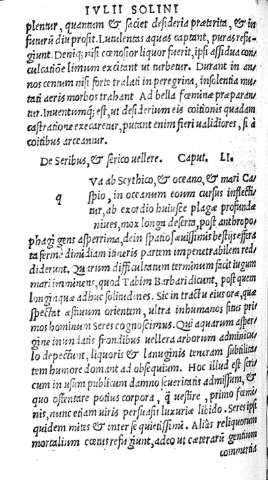 IVLII SOLINI
plentur, quantum & saciet desideria præterita, & in
futurũ diu prosit. Lutulentas aquas captant, puras refu
giunt. Deniq; nisi cœnosior liquor fuerit, ipsi assidua con
culcatiõe limum excitant ut turbetur. Durant in an
nos centum nisi forte tralati in peregrina, insolentia mu
tati aeris morbos trahant Ad bella fœminæ præparan
tur. Inuentumq; est, ut desiderium eis coitionis quadam
castratione execaretur, putant enim fieri ualidiores, si à
coitibus arceantur.
De Seribus, & serico uellere. Caput. LI.
Q Va ab Scythico, & oceano, & mari Ca
spio, in oceanum eoum cursus inflecti
tur, ab exordio huiusce plagæ profundæ
niues, mox longa deserta, post anthropo
phagi gens asperrima, dein spatio sæuissimis bestijs effera
ta ferme dimidiam itineris partem impenetrabilem red
diderunt. Quarum difficultatum terminum facit iugum
mari imminens, quod Tabim Barbari dicunt, post quem
longinquæ adhuc solitudines. Sic in tractu eius oræ, quæ
spectat æstiuum orientem, ultra inhumanos situs pri
mos hominum Seres cognoscimus. Qui aquarum asper
gine inundatis frondibus uellera arborum adminicu
lo depectunt, liquoris & lanuginis teneram subtilita
tem humore domant ad obsequium. Hoc illud est seri
cum in usum publicum damno seueritatis admissum, &
quo ostentare potius corpora, quàm uestire, primo fœmi
nis, nunc etiam uiris persuasit luxuriæ libido. Seres ipsi
quidem mites & inter se quietissimi. Aliâs reliquorum
mortalium cœtus refugiunt, adeo ut cæterarũ gentium
commertia